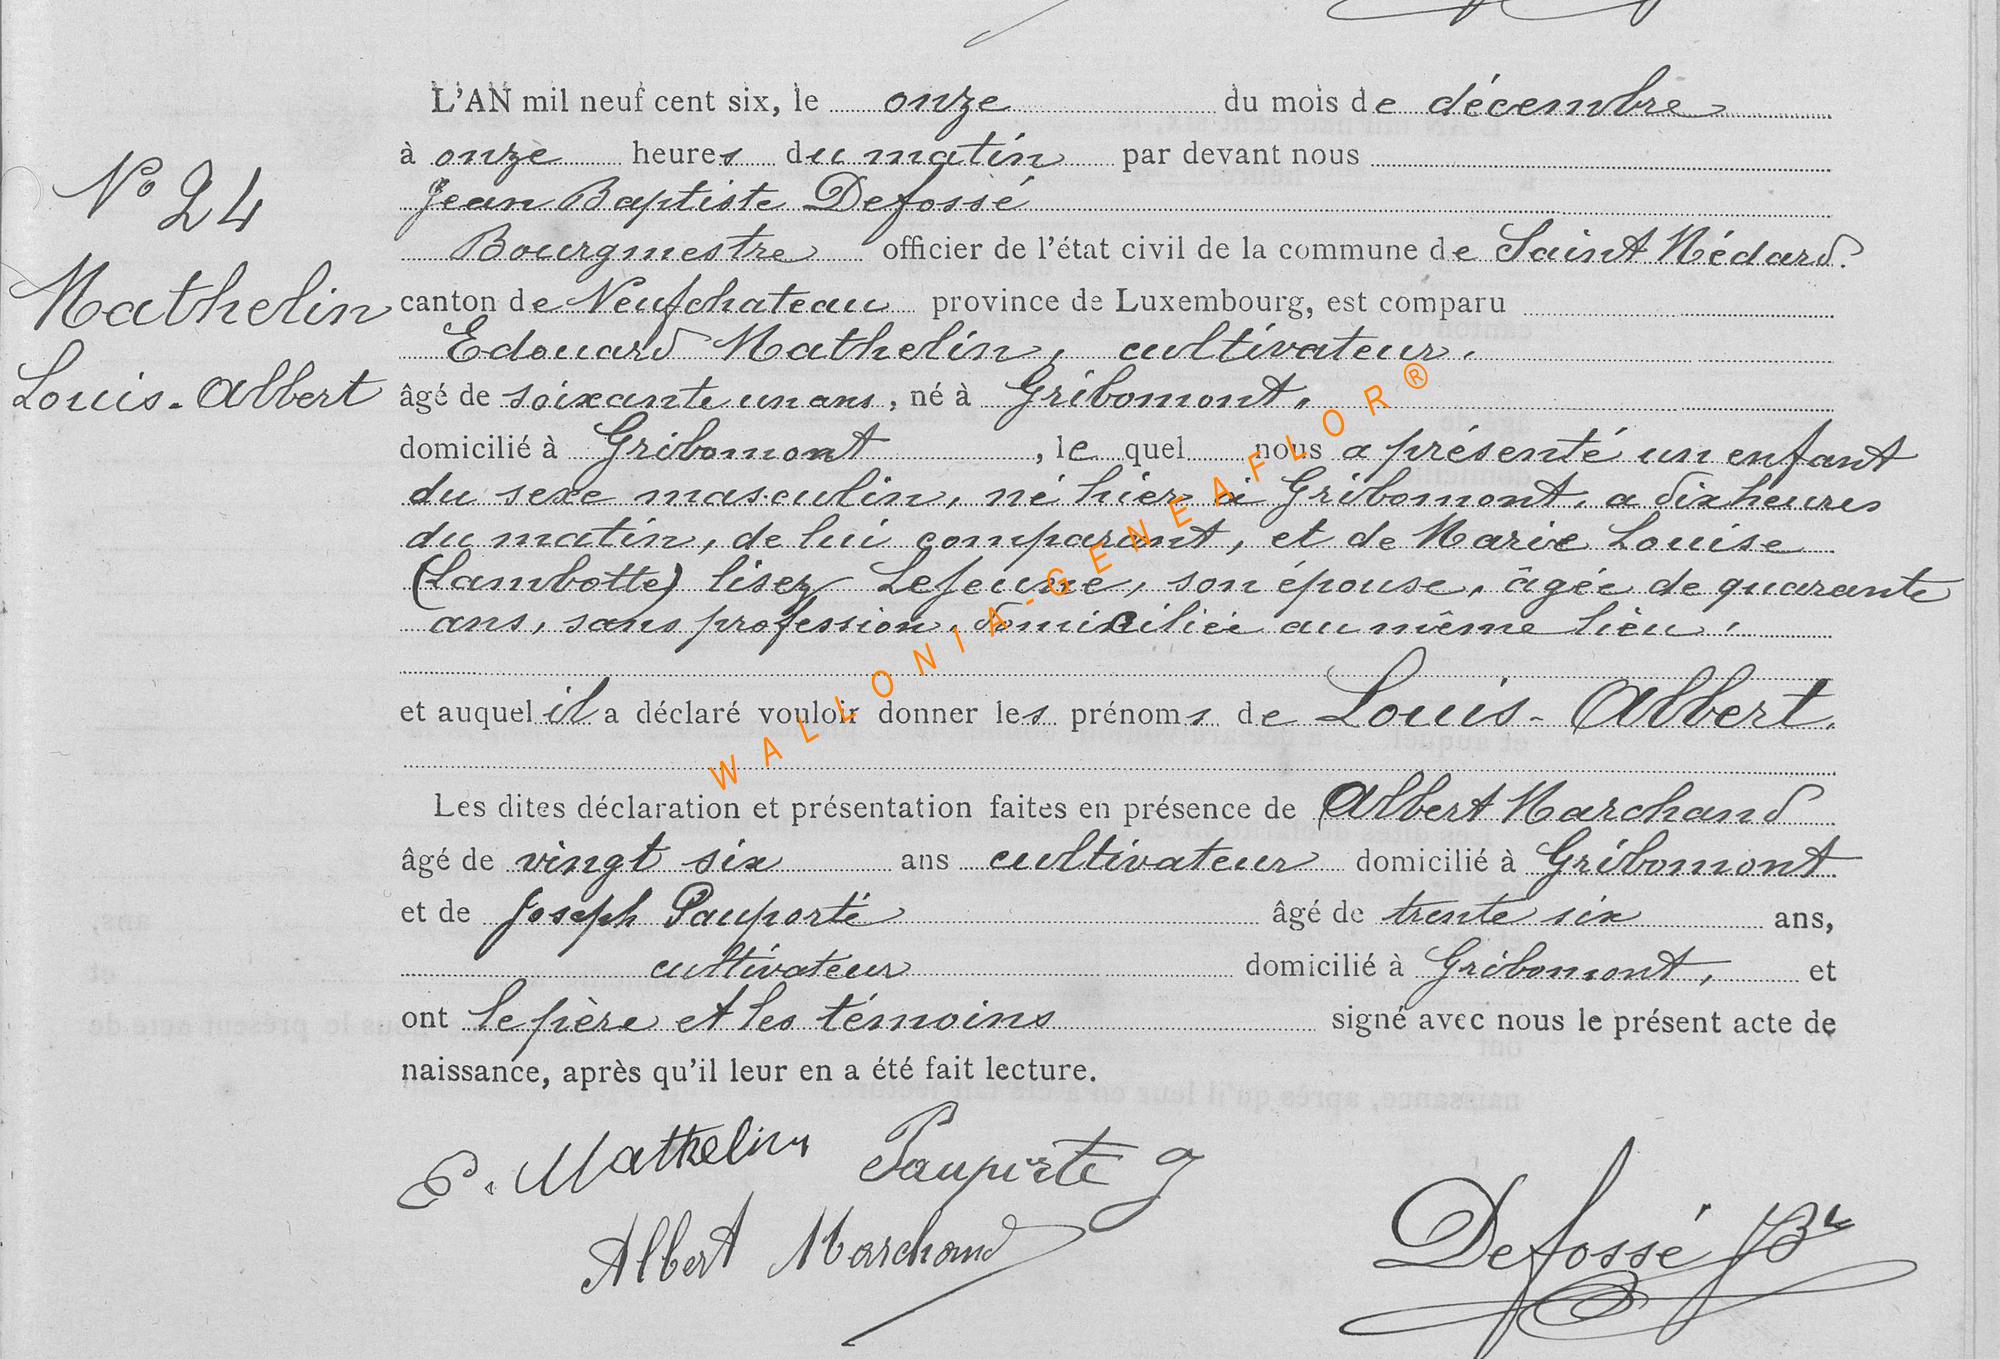 L'AN mil neuf cent six, le onze du mois de décembre
à onze heures du matin par devant nous
Jean Baptiste Defossé
Bourgmestre officier de l'état civil de la commune de Saint Médard.
canton de Neufchateau province de Luxembourg, est comparu
Edouard Mathelin, cultivateur,
âgé de soixante un ans, né à Gribomont,
domicilié à Gribomont, le quel nous a présenté un enfant
du sexe masculin, né hier à Gribomont, a dix heures
du matin, de lui comparant, et de Marie Louise
(Lambotte) lisez Lejeune, son épouse, âgée de quarante
ans, sans profession, domiciliée au même lieu,
et auquel il a déclaré vouloir donner les prénoms de Louis-Albert.
Les dites déclaration et présentation faites en présence de Albert Marchand
âgé de vingt six ans cultivateur domicilié à Gribomont
et de Joseph Pauporté âgé de trente six ans,
cultivateur domicilié à Gribomont, et
ont le père et les témoins signé avec nous le présent acte de
naissance, après qu'il leur en a été fait lecture.
No 24
Mathelin
Louis-Albert
E. Mathelin Pauporté J
Albert Marchand
Defossé JBte
WALLONIA-GENEAFLOR®